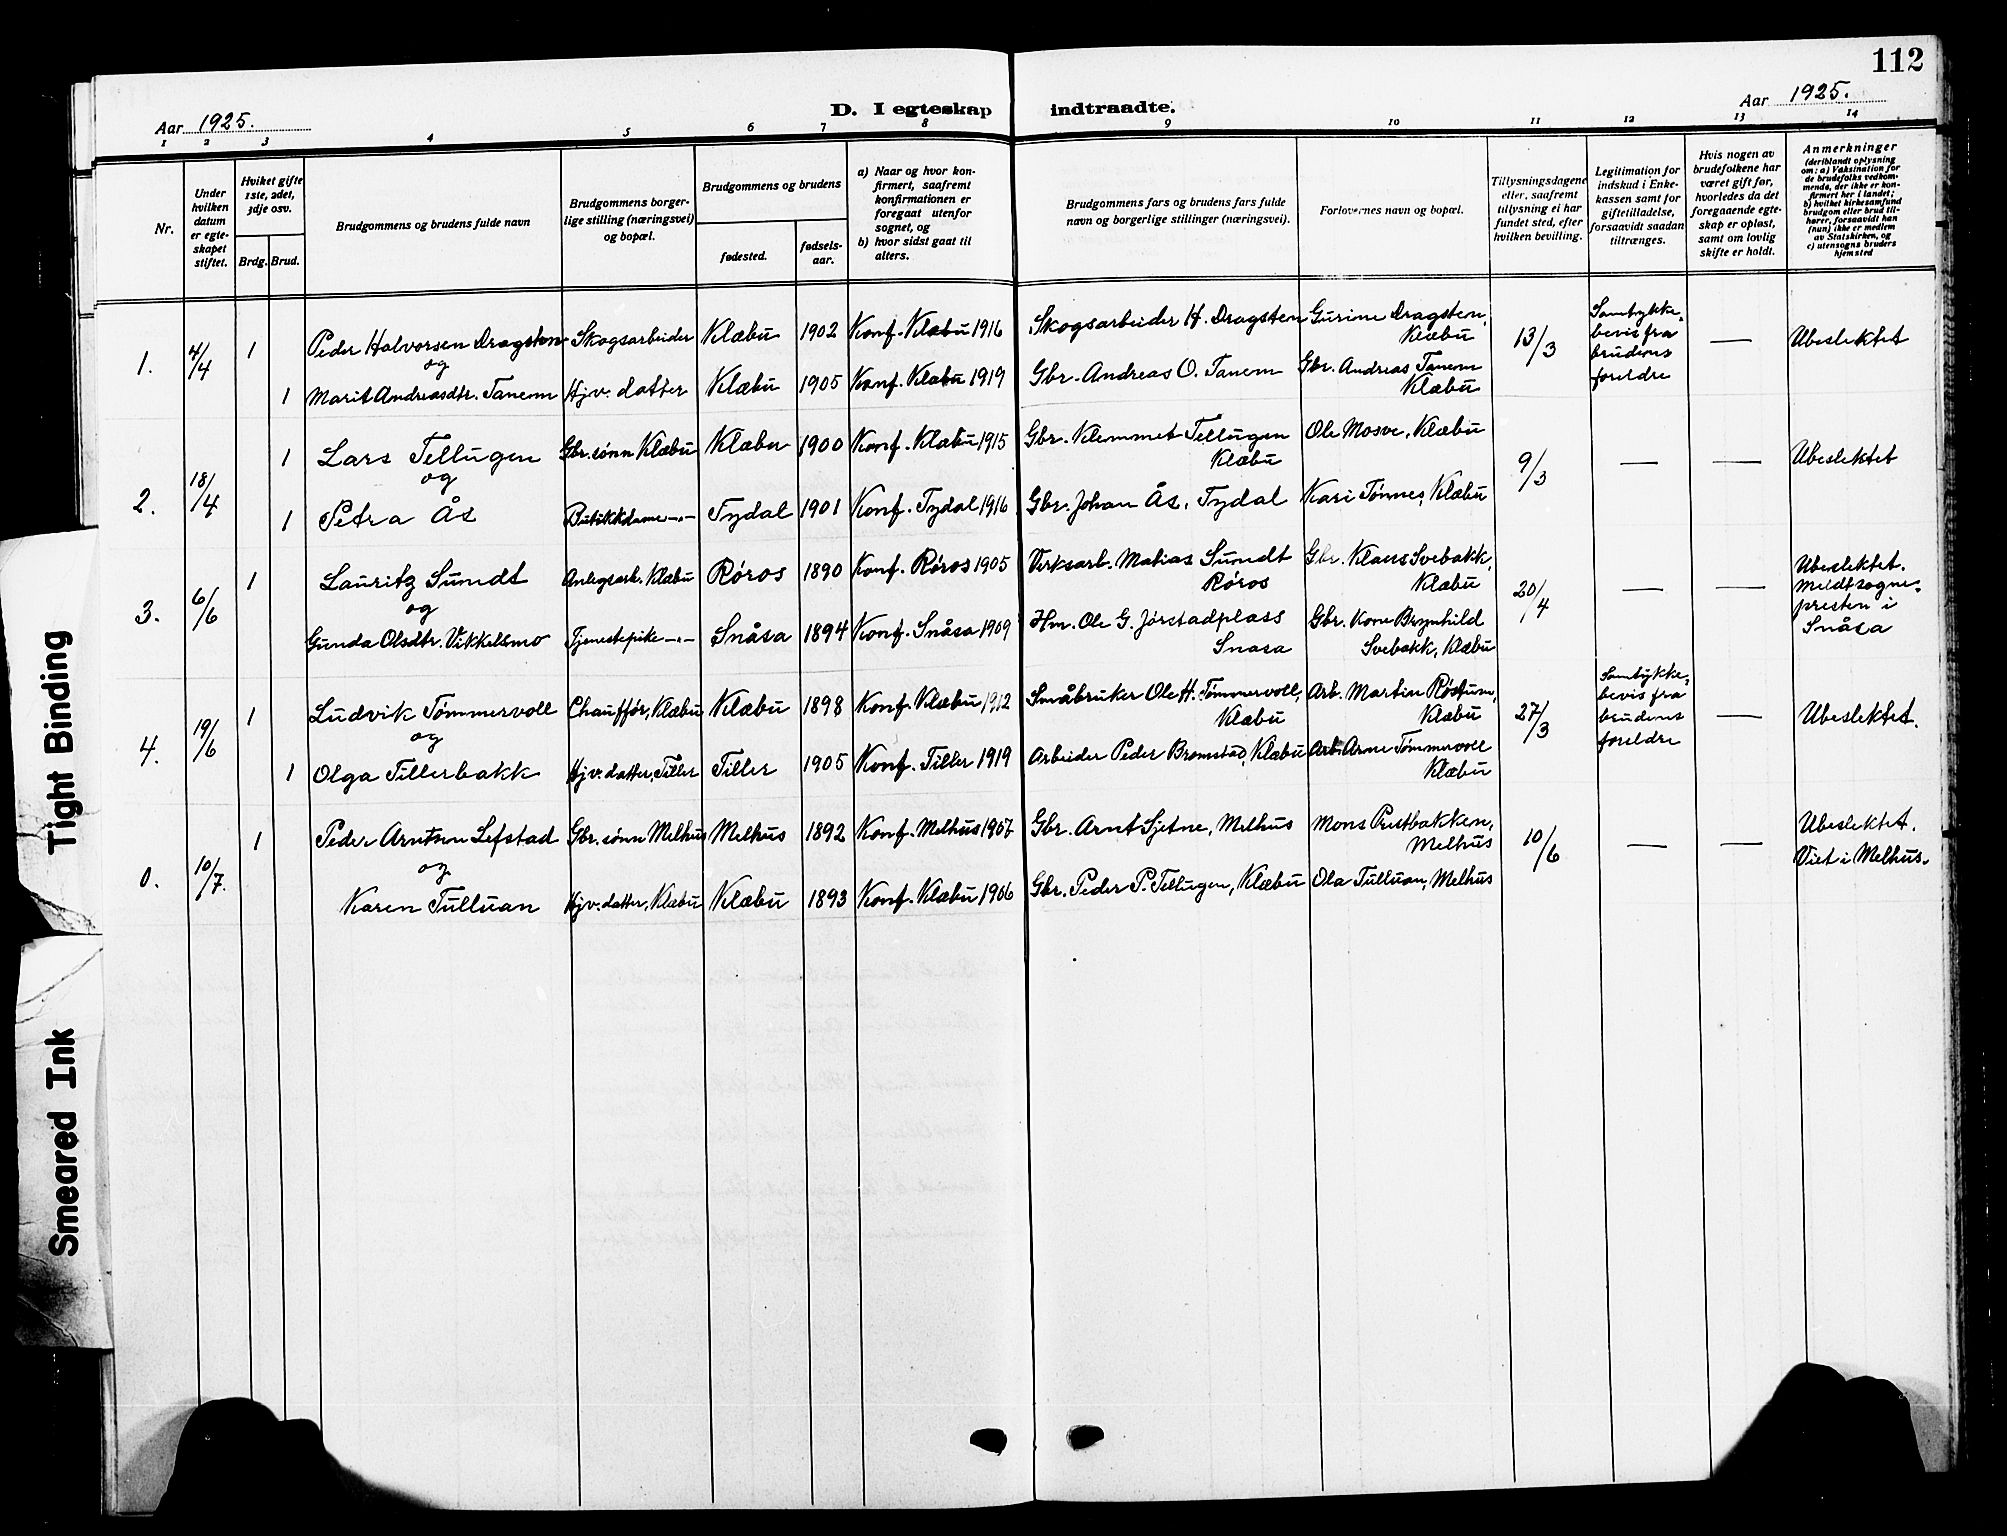 112
Aar 1925.
D. I egteskap indtraadte.
Aar 1925.
1 2 3 4 5 6 7 8 9 10 11 12 13 14
Nr.
Under hvilken datum er egte- skapet stiftet.
Hviket gifte 1ste, 2det, 3dje osv.
Brdg. Brud.
Brudgommens og brudens fulde navn
Brudgommens borger- lige stilling (næringsvei) og bopæl.
Brudgommens og brudens
fødested.
fødsels- aar.
a) Naar og hvor kon- firmert, saafremt konfirmationen er foregaat utenfor sognet, og
b) hvor sidst gaat til alters.
Brudgommens fars og brudens fars fulde navn og borgerlige stillinger (næringsvei).
Forlovernes navn og bopæl.
Tillysningsdagene eller, saafremt tillysning ei har fundet sted, efter hvilken bevilling.
Legitimation for indskud i Enke- kassen samt for giftetilladelse, forsaavidt saadan tiltrænges.
Hvis nogen av brudefolkene har været gift før, hvorledes da det foregaaende egte- skap er opløst, samt om lovlig skifte er holdt.
Anmerkninger
(deriblandt oplysning om: a) Vaksination for de brudefolks vedkom- mende, der ikke er kon- firmert her i landet; b) hvilket kirkesamfund brudgom eller brud til- hører, forsaavidt han (hun) ikke er medlem av Statskirken, og c) utensogns bruders hjemsted
1. 4/4 1 Peder Halvorsen Dragsten Skogsarbeider Klæbu 1902 Konf. Klæbu 1916 Skogsarbeider H. Dragsten Gurine Dragsten, Klæbu 13/3 Samtykke- bevis fra brudens foreldre — Ubeslektet
og
1 Marit Andreasdtr. Tanem Hjv. datter Klæbu 1905 Konf. Klæbu 1919 Gbr. Andreas O. Tanem Gbr. Andreas Tanem Klæbu
2. 18/4 1 Lars Tellugen Gbr. sønn Klæbu Klæbu 1900 Konf. Klæbu 1915 Gbr. Klemmet Tellugen Klæbu Ole Mosve, Klæbu 9/3 — — Ubeslektet
og
1 Petra Ås Butikkdame -"- Tydal 1901 Konf. Tydal 1916 Gbr. Johan Ås, Tydal Kari Tønnes, Klæbu
3. 6/6 1 Lauritz Sundt Anlegsarb. Klæbu Røros 1890 Konf. Røros 1905 Verksarb. Matias Sundt Røros Gbr. Klaus Svebakk, Klæbu 20/4 — — Ubeslektet. Meldt sogne- presten i Snåsa
og
Gunda Olsdtr. Vikkelsmo Tjenestepike -"- Snåsa 1894 Konf. Snåsa 1909 Hm. Ole G. Jørstadplass Snasa Gbr. Kone Brynhild Svebakk, Klæbu
4. 19/6 1 Ludvik Tømmervoll Chauffør, Klæbu Klæbu 1898 Konf. Klæbu 1912 Småbruker Ole H. Tømmervoll, Klæbu Arb. Martin Røstum, Klæbu 27/3 Samtykke- bevis fra brudens foreldre — Ubeslektet.
og
1 Olga Tillerbakk Hjv. datter, Tiller Tiller 1905 Konf. Tiller 1919 Arbeider Peder Bromstad, Klæbu Arb. Arne Tømmervoll Klæbu
0. 10/7. 1 Peder Arntsen Lefstad Gbr. sønn Melhus Melhus 1892 Konf. Melhus 1907 Gbr. Arnt Sjetne, Melhus Mons Prestbakken, Melhus 10/6 — — Ubeslektet. Viet i Melhus.
og
Karen Tulluan Hjv. datter, Klæbu Klæbu 1893 Konf. Klæbu 1906 Gbr. Peder P. Tellugen, Klæbu Ola Tulluan, Melhus
Tight Binding
Smeared Ink